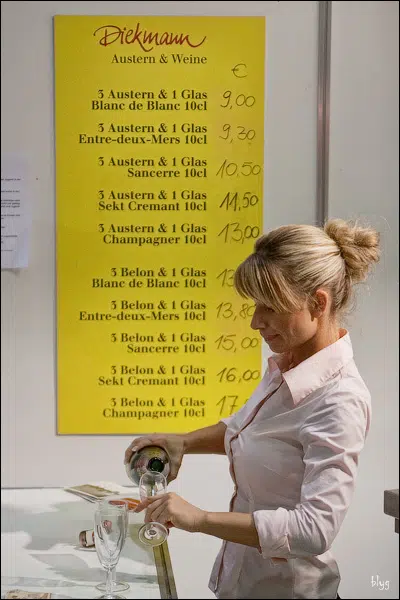 Diekmann
Austern & Weine
€
3 Austern & 1 Glas
Blanc de Blanc 10cl 9,00
3 Austern & 1 Glas
Entre-deux-Mers 10cl 9,30
3 Austern & 1 Glas
Sancerre 10cl 10,50
3 Austern & 1 Glas
Sekt Cremant 10cl 11,50
3 Austern & 1 Glas
Champagner 10cl 13,00
3 Belon & 1 Glas
Blanc de Blanc 10cl 13
3 Belon & 1 Glas
Entre-deux-Mers 10cl 13,80
3 Belon & 1 Glas
Sancerre 10cl 15,00
3 Belon & 1 Glas
Sekt Cremant 10cl 16,00
3 Belon & 1 Glas
Champagner 10cl 17
blyg